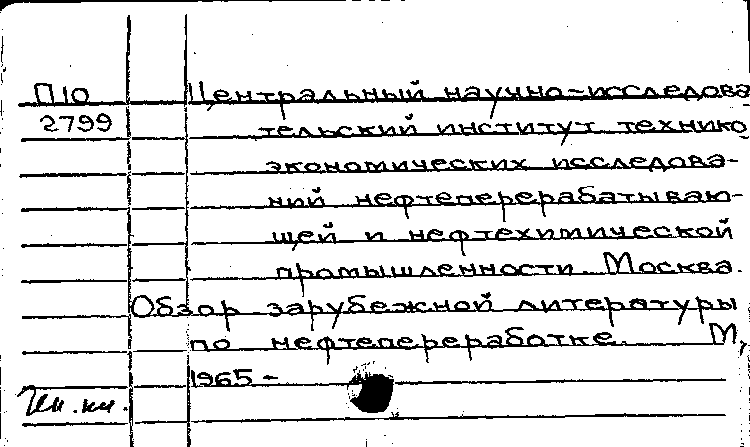 П10 Центральный научно-исследова
2799 тельский институт технико
экономических исследова-
ний нефтеперерабатываю-
щей и нефтехимической
промышленности. Москва.
Обзор зарубежной литературы
по нефтепереработке. М,
1965-